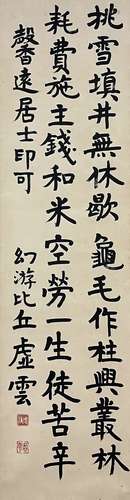 挑雪填井無休歇龜毛作柱興叢林
耗費施主錢和米空勞一生徒苦辛
馨遠居士印可
幻游比丘虛雲